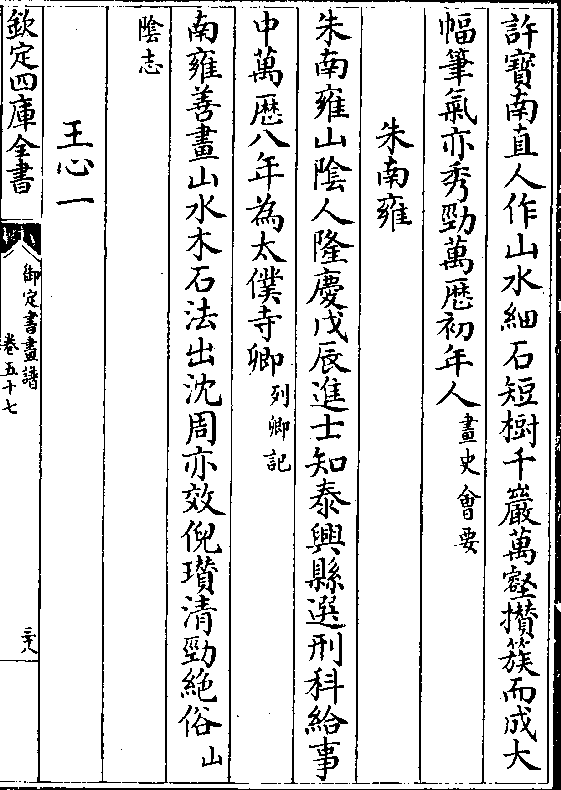 許寶南直人作山水細石短樹千巖萬壑攅簇而成大
幅筆氣亦秀勁萬厯初年人畫史會要
朱南雍
朱南雍山陰人隆慶戊辰進士知泰興縣選刑科給事
中萬厯八年為太僕寺卿列卿記
南雍善畫山水木石法出沈周亦效倪瓚清勁絶俗山
隂志
王心一
欽定四庫全書
御定書畫譜
卷五十七
三十八